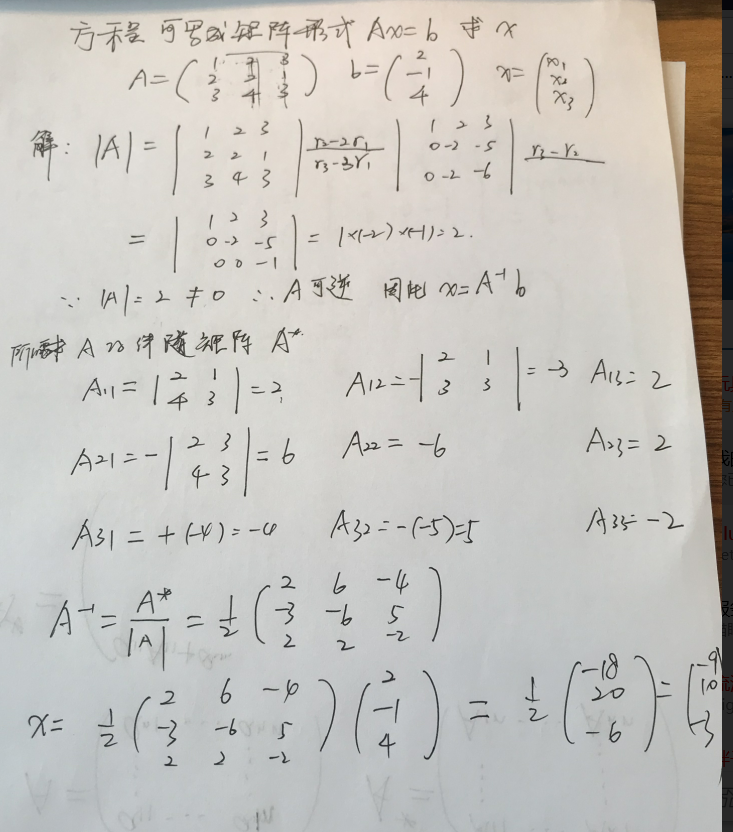 方程可写成矩阵形式 Ax=b 求 x
A=(1 2 3 2 2 1 3 4 3) b=(2 -1 4) x=(x1 x2 x3)
解: |A|=|1 2 3 2 2 1 3 4 3| r2-2r1 r3-3r1 |1 2 3 0 -2 -5 0 -2 -6| r3-r2
=|1 2 3 0 -2 -5 0 0 -1|=1×(-2)×(-1)=2.
∵ |A|=2≠0 ∴ A可逆 因此 x=A⁻¹b
所以求 A的伴随矩阵 A*
A11=|2 1 4 3|=2 A12=-|2 1 3 3|=-3 A13=2
A21=-|2 3 4 3|=6 A22=-6 A23=2
A31=+(-4)=-4 A32=-(-5)=5 A33=-2
A⁻¹=A*/|A|=1/2(2 6 -4 -3 -6 5 2 2 -2)
x=1/2(2 6 -4 -3 -6 5 2 2 -2)(2 -1 4)=1/2(-18 20 -6)=(-9 10 -3)